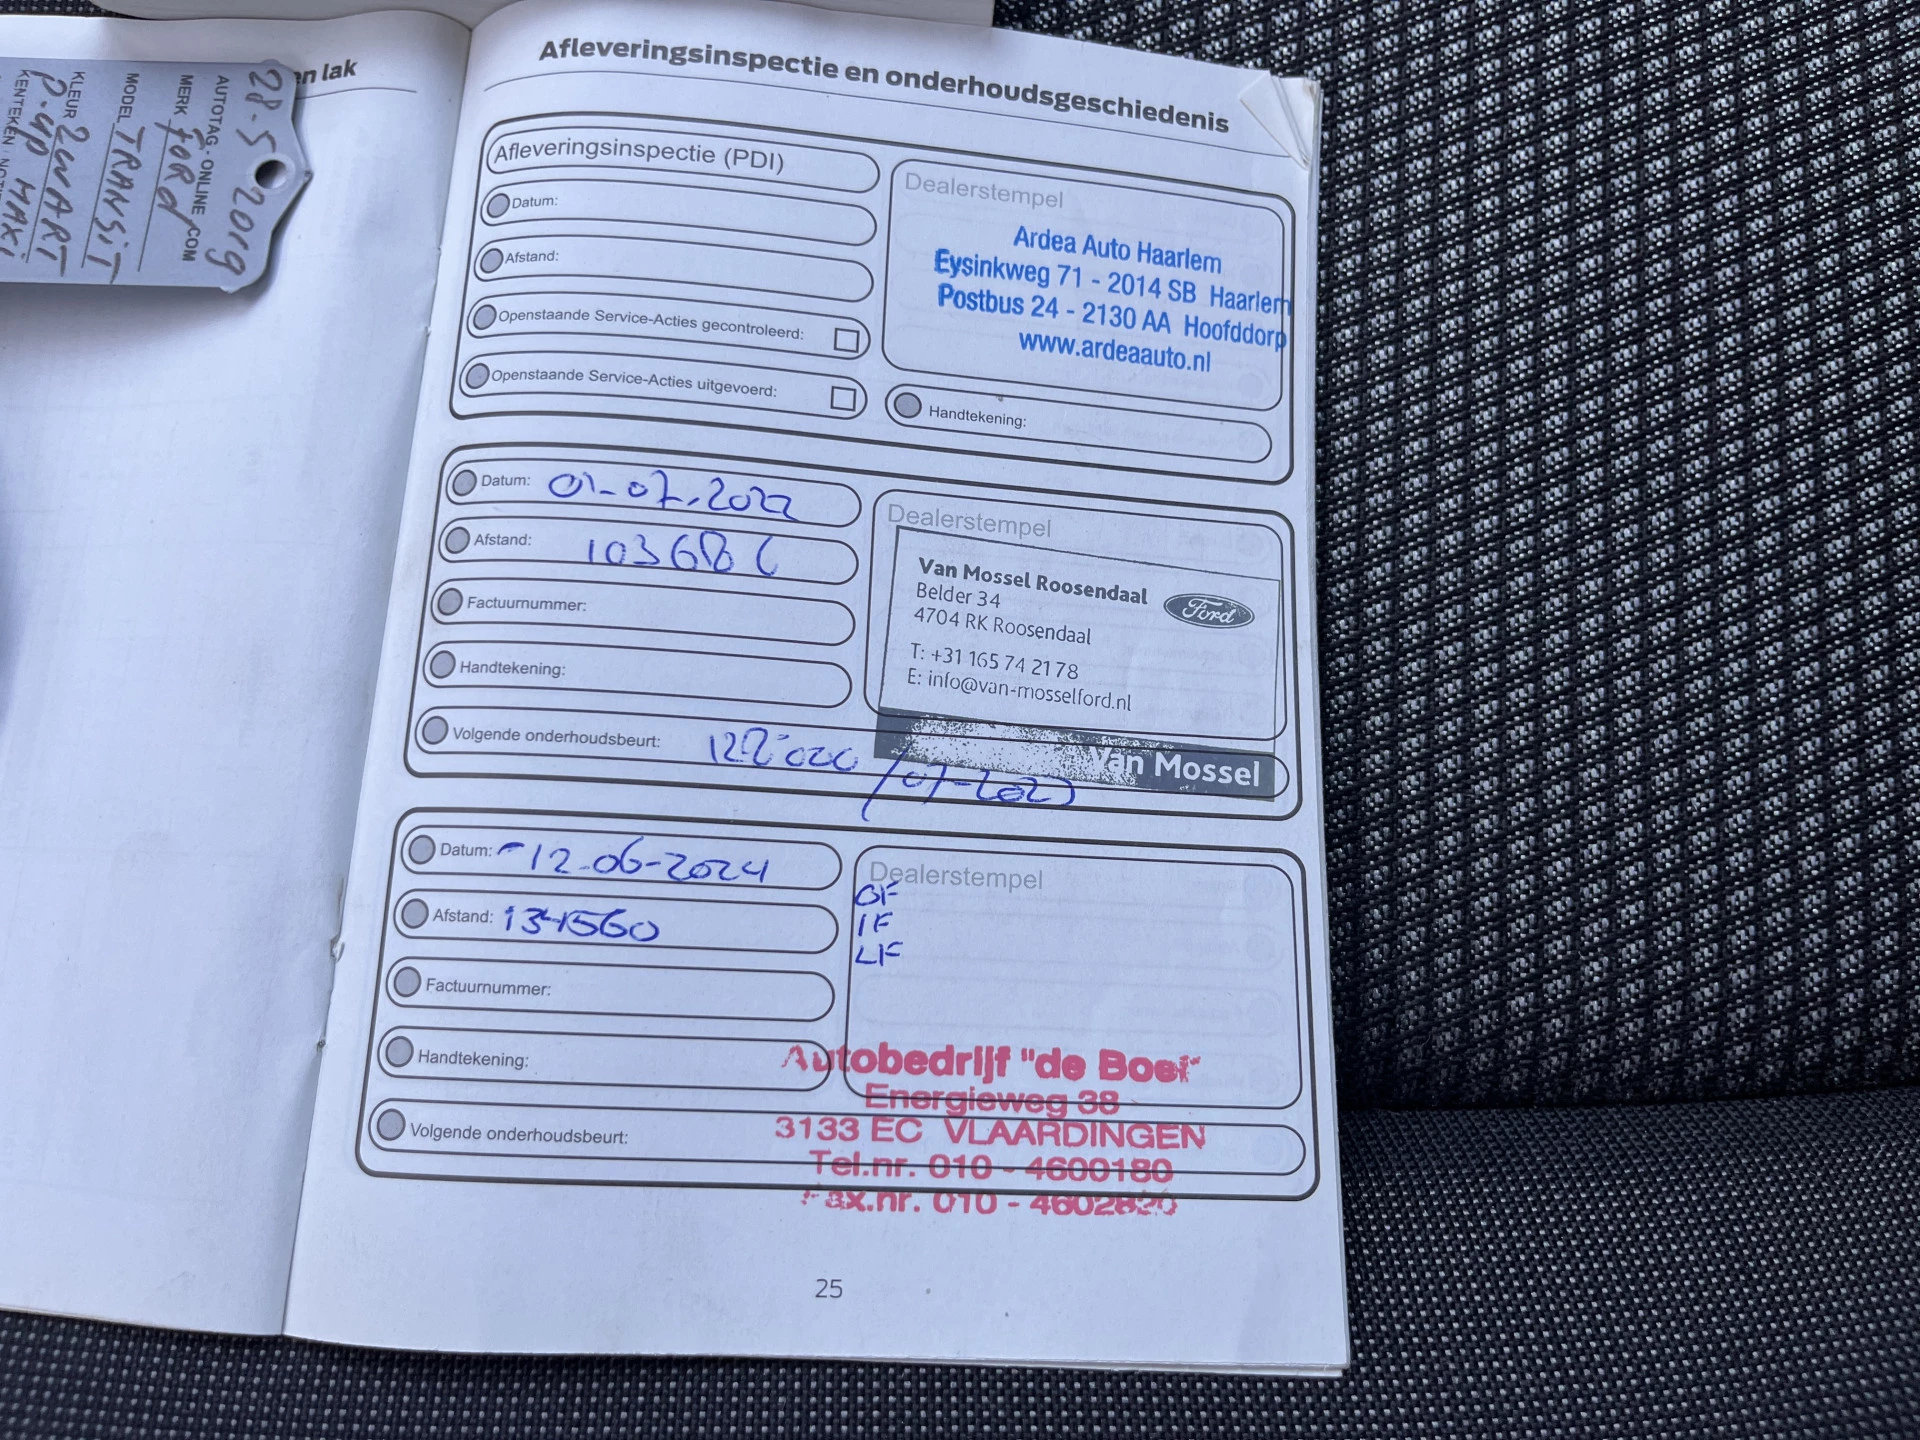 en lak
28-5 2019
AUTOTAG-ONLINE.COM
MERK FORD
MODEL TRANSIT
KLEUR ZWART
P-UP MAXI
KENTEKEN
Afleveringsinspectie en onderhoudsgeschiedenis
Afleveringsinspectie (PDI)
Datum:
Afstand:
Openstaande Service-Acties gecontroleerd:
Openstaande Service-Acties uitgevoerd:
Dealerstempel
Ardea Auto Haarlem
Eysinkweg 71 - 2014 SB Haarlem
Postbus 24 - 2130 AA Hoofddorp
www.ardeaauto.nl
Handtekening:
Datum: 01-07-2022
Afstand: 103686
Factuurnummer:
Handtekening:
Volgende onderhoudsbeurt: /07-2023
Dealerstempel
Van Mossel Roosendaal
Belder 34
4704 RK Roosendaal
T: +31 165 74 21 78
E: info@van-mosselford.nl
Ford
Van Mossel
Datum: -12-06-2024
Afstand: 134560
Factuurnummer:
Handtekening:
Volgende onderhoudsbeurt:
Dealerstempel
OF
IF
LF
Autobedrijf "de Boei"
Energieweg 38
3133 EC VLAARDINGEN
Tel.nr. 010 - 4600180
Fax.nr. 010 - 4602820
25